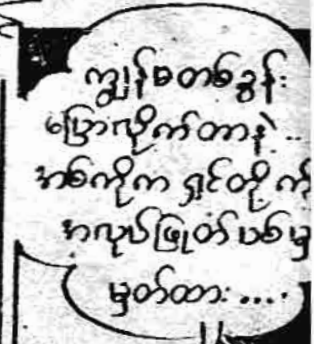 ကျွန်မတစ်ခွန်း
ပြောလိုက်တာနဲ့ ..
အစ်ကိုက ရှင်တို့ကို
အလုပ်ဖြုတ်ပစ်မှ
မှတ်ထား ....